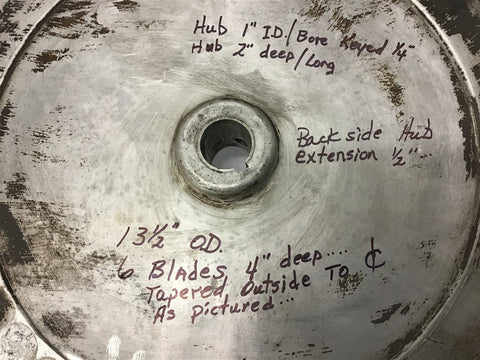 Hub 1" I.D./Bore Keyed 1/4"
Hub 2" deep/Long
Back side Hub
extension 1/2"...
13 1/2" O.D.
6 Blades 4" deep....
Tapered Outside To ℄
As pictured...